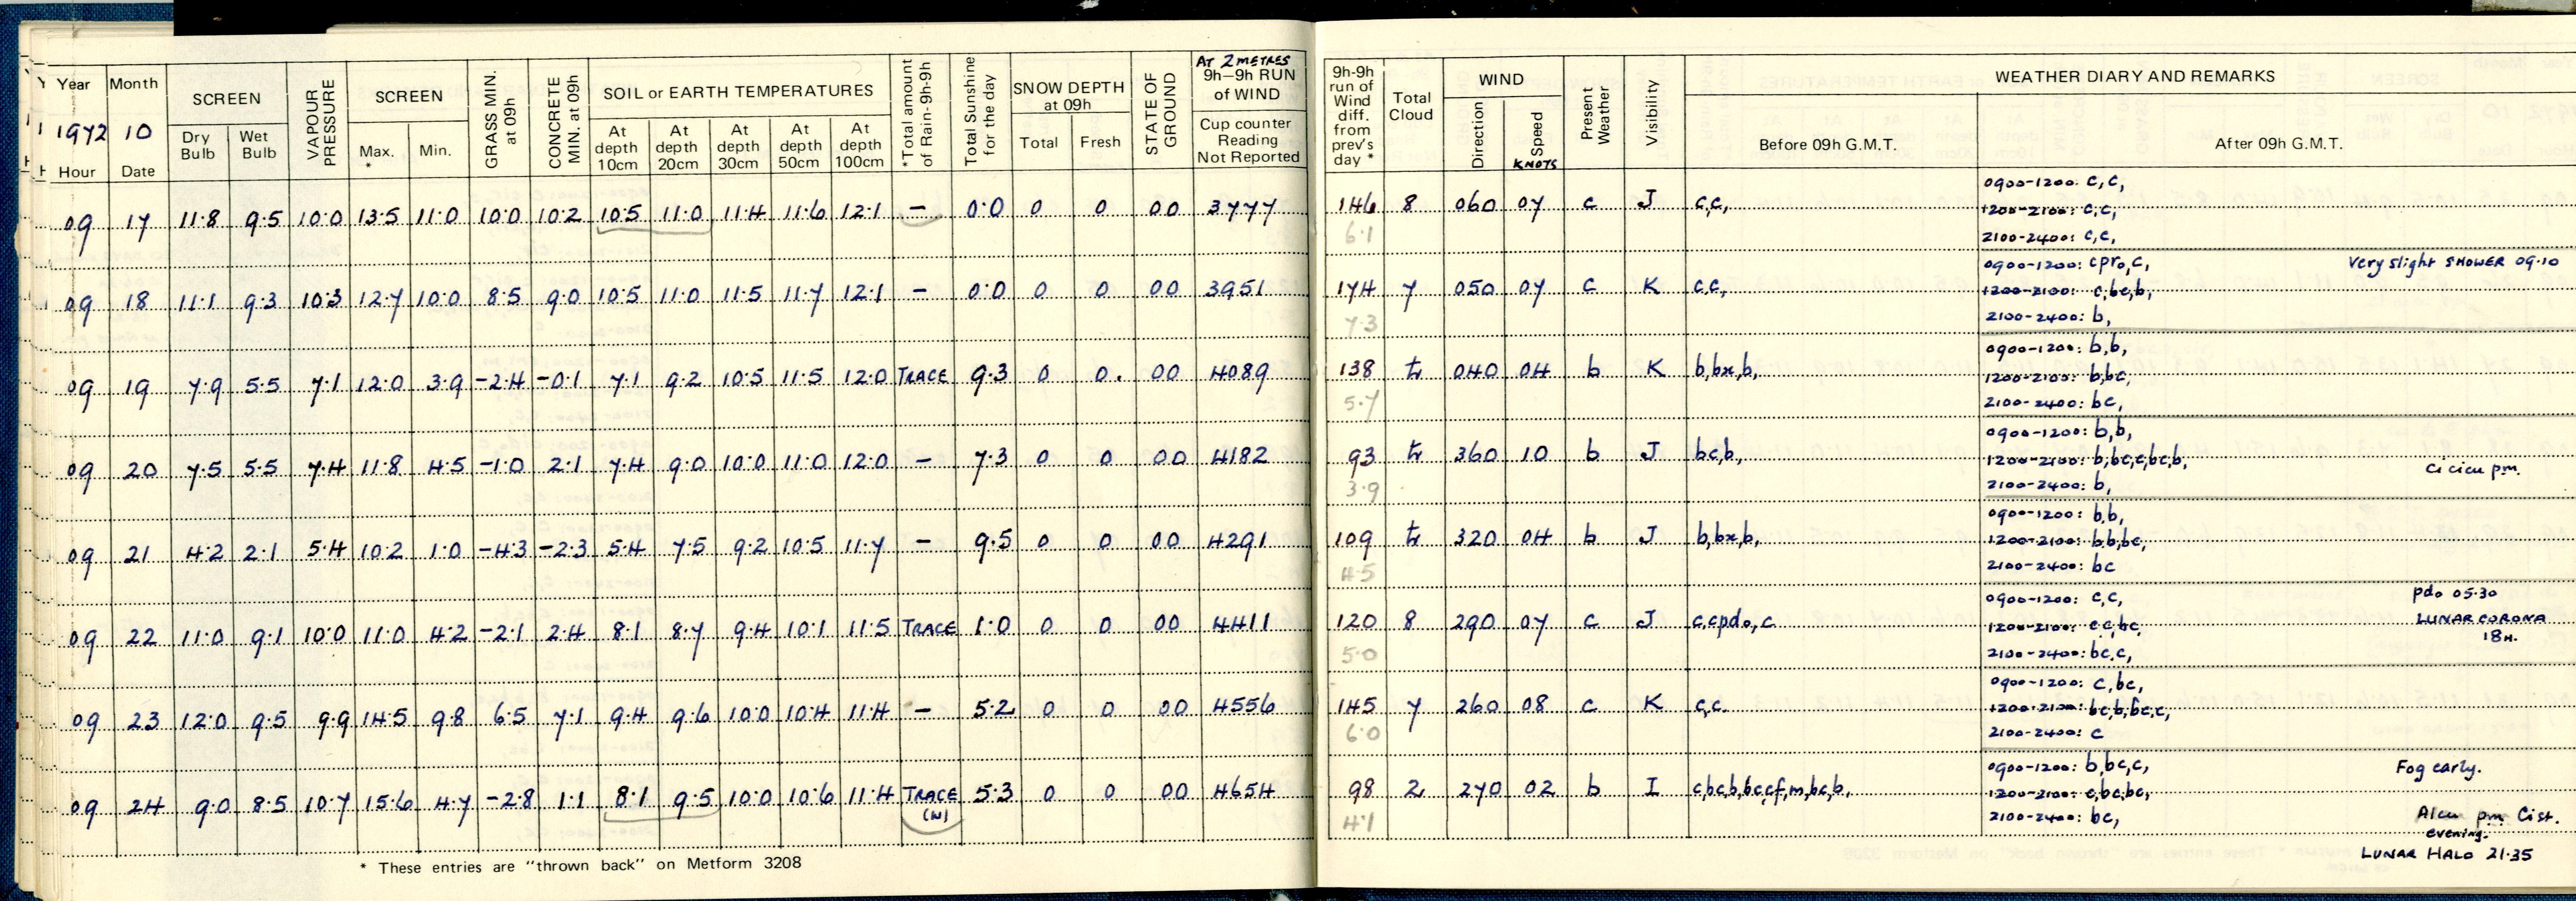 Year Month SCREEN VAPOUR PRESSURE SCREEN GRASS MIN. at 09h CONCRETE MIN. at 09h SOIL or EARTH TEMPERATURES *Total amount of Rain-9h-9h Total Sunshine for the day SNOW DEPTH at 09h STATE OF GROUND AT 2 METRES 9h-9h RUN of WIND 9h-9h run of Wind diff. from prev's day * Total Cloud WIND Present Weather Visibility WEATHER DIARY AND REMARKS
1972 10 Dry Bulb Wet Bulb Max. * Min. At depth 10cm At depth 20cm At depth 30cm At depth 50cm At depth 100cm Total Fresh Cup counter Reading Not Reported Direction Speed KNOTS Before 09h G.M.T. After 09h G.M.T.
Hour Date
0900-1200: c,c,
09 17 11.8 9.5 10.0 13.5 11.0 10.0 10.2 10.5 11.0 11.4 11.6 12.1 – 0.0 0 0 00 3777 146 8 060 07 c J c,c, 1200-2100: c,c,
6.1 2100-2400: c,c,
0900-1200: cpr₀,c, Very slight SHOWER 09.10
09 18 11.1 9.3 10.3 12.7 10.0 8.5 9.0 10.5 11.0 11.5 11.7 12.1 – 0.0 0 0 00 3951 174 7 050 07 c K c,c, 1200-2100: c,bc,b,
7.3 2100-2400: b,
0900-1200: b,b,
09 19 7.9 5.5 7.1 12.0 3.9 -2.4 -0.1 7.1 9.2 10.5 11.5 12.0 TRACE 9.3 0 0. 00 4089 138 tr 040 04 b K b,bx,b, 1200-2100: b,bc,
5.7 2100-2400: bc,
0900-1200: b,b,
09 20 7.5 5.5 7.4 11.8 4.5 -1.0 2.1 7.4 9.0 10.0 11.0 12.0 – 7.3 0 0 00 4182 93 tr 360 10 b J bc,b, 1200-2100: b,bc,c,bc,b, Ci cicu pm.
3.9 2100-2400: b,
0900-1200: b,b,
09 21 4.2 2.1 5.4 10.2 1.0 -4.3 -2.3 5.4 7.5 9.2 10.5 11.7 – 9.5 0 0 00 4291 109 tr 320 04 b J b,bx,b, 1200-2100: b,b,bc,
4.5 2100-2400: bc
0900-1200: c,c, pd₀ 05.30
09 22 11.0 9.1 10.0 11.0 4.2 -2.1 2.4 8.1 8.7 9.4 10.1 11.5 TRACE 1.0 0 0 00 4411 120 8 290 07 c J c,cpd₀,c 1200-2100: c,c,bc, LUNAR CORONA 18H.
5.0 2100-2400: bc,c,
0900-1200: c,bc,
09 23 12.0 9.5 9.9 14.5 9.8 6.5 7.1 9.4 9.6 10.0 10.4 11.4 – 5.2 0 0 00 4556 145 7 260 08 c K c,c. 1200-2100: bc,b,bc,c,
6.0 2100-2400: c
0900-1200: b,bc,c, Fog early.
09 24 9.0 8.5 10.7 15.6 4.7 -2.8 1.1 8.1 9.5 10.0 10.6 11.4 TRACE (W) 5.3 0 0 00 4654 98 2 270 02 b I c,bc,b,bc,cf,m,bc,b, 1200-2100: c,bc,bc,
4.1 2100-2400: bc, Alcu pm Cist. evening.
* These entries are "thrown back" on Metform 3208 LUNAR HALO 21.35